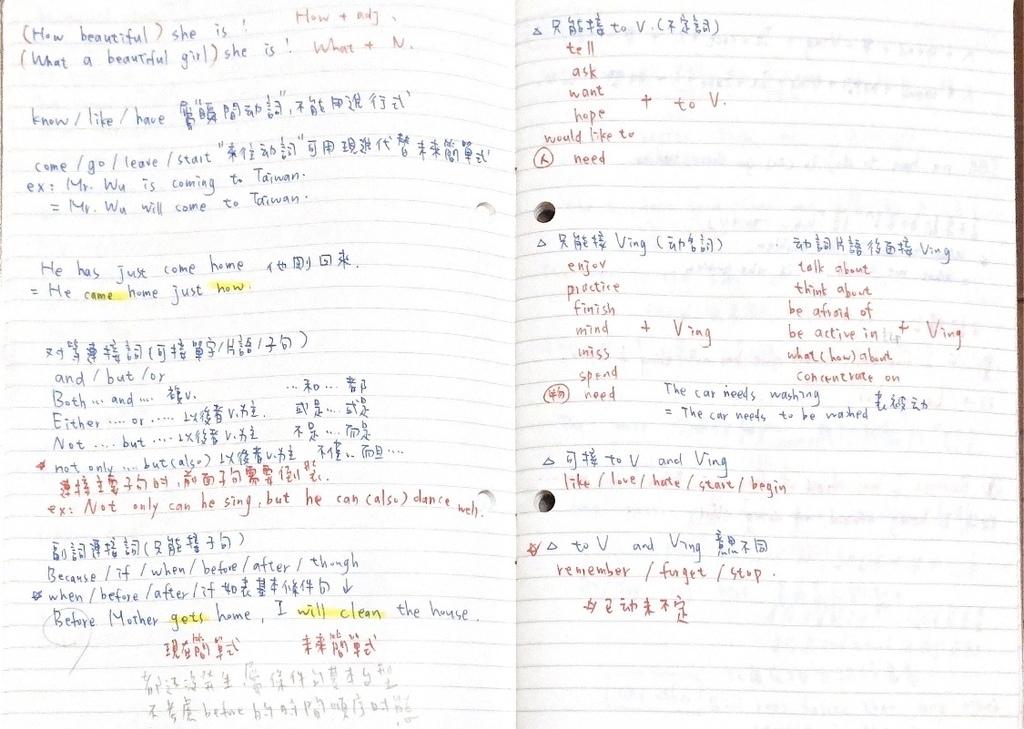 (How beautiful) she is! How + adj.
(What a beautiful girl) she is! What + N.
know / like / have 屬"瞬間动詞",不能用進行式
come / go / leave / start "來往动詞"可用現進代替未來簡單式
ex: Mr. Wu is coming to Taiwan.
= Mr. Wu will come to Taiwan.
He has just come home 他剛回來.
= He came home just now.
对等連接詞(可接單字/片語/子句)
and / but / or
Both … and …. 複V. …和…都
Either … or …. 以後者V.為主. 或是…或是
Not …. but …. 以後者V.為主 不是…而是
* not only … but (also) 以後者V.為主 不僅… 而且…
連接主要子句时,前面子句需要倒裝.
ex: Not only can he sing, but he can (also) dance well.
副詞連接詞(只能接子句)
Because / if / when / before / after / though
* when / before / after / if 如表基本條件句 ↓
Before Mother gets home, I will clean the house.
現在簡單式 未來簡單式
都还沒發生,屬條件句基本句型
不考慮before的时間順序时態
△ 只能接 to V. (不定詞)
tell
ask
want
hope + to V.
would like to
(人) need
△ 只能接 Ving (动名詞) 动詞片語後面接 Ving
enjoy talk about
practice think about
finish be afraid of
mind + Ving be active in + Ving
miss what (how) about
spend concentrate on
(物) need The car needs washing 表被动
= The car needs to be washed
△ 可接 to V and Ving
like / love / hate / start / begin
☆ △ to V and Ving 意思不同
remember / forget / stop.
☆已动未不定